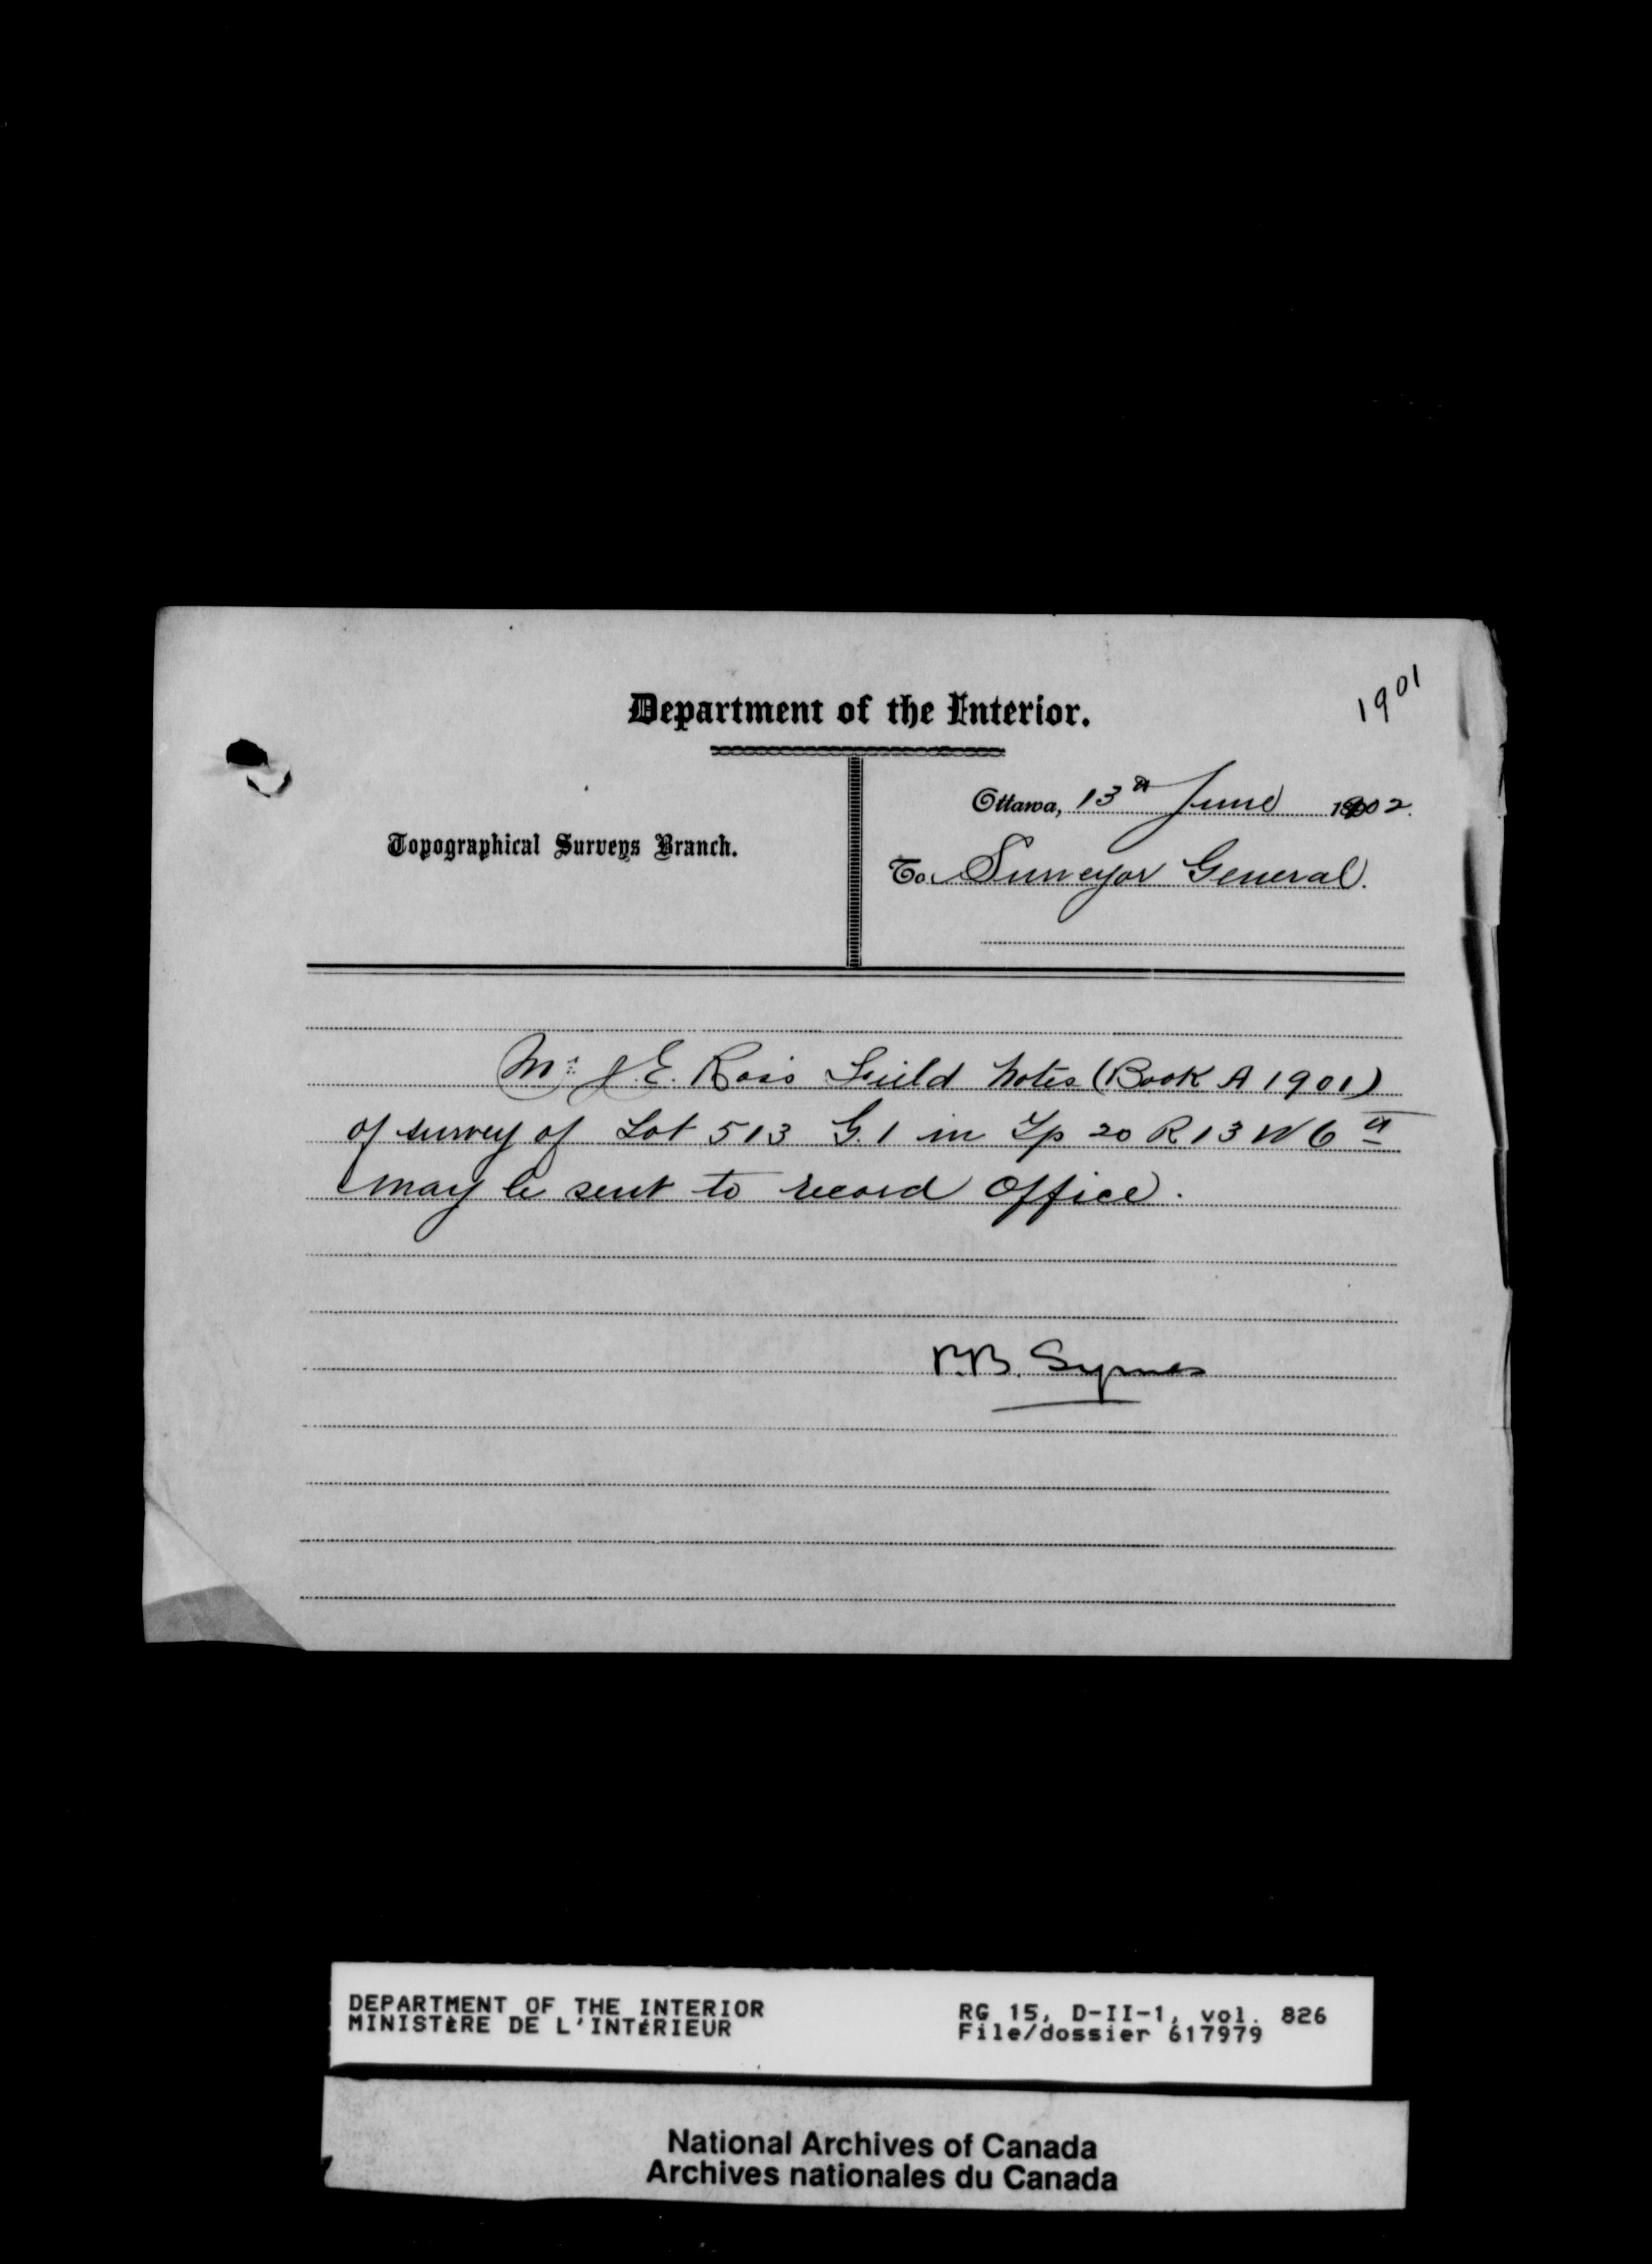 1901
Department of the Interior.
Ottawa, 13th June 1902.
Topographical Surveys Branch.
To Surveyor General.
Mr. J. E. Ross Field Notes (Book A 1901)
of survey of Lot 513 G. 1 in Tp 20 R 13 W 6th
may be sent to record office.
P.B. Symes
DEPARTMENT OF THE INTERIOR
MINISTÈRE DE L'INTÉRIEUR
RG 15, D-II-1, vol. 826
File/dossier 617979
National Archives of Canada
Archives nationales du Canada